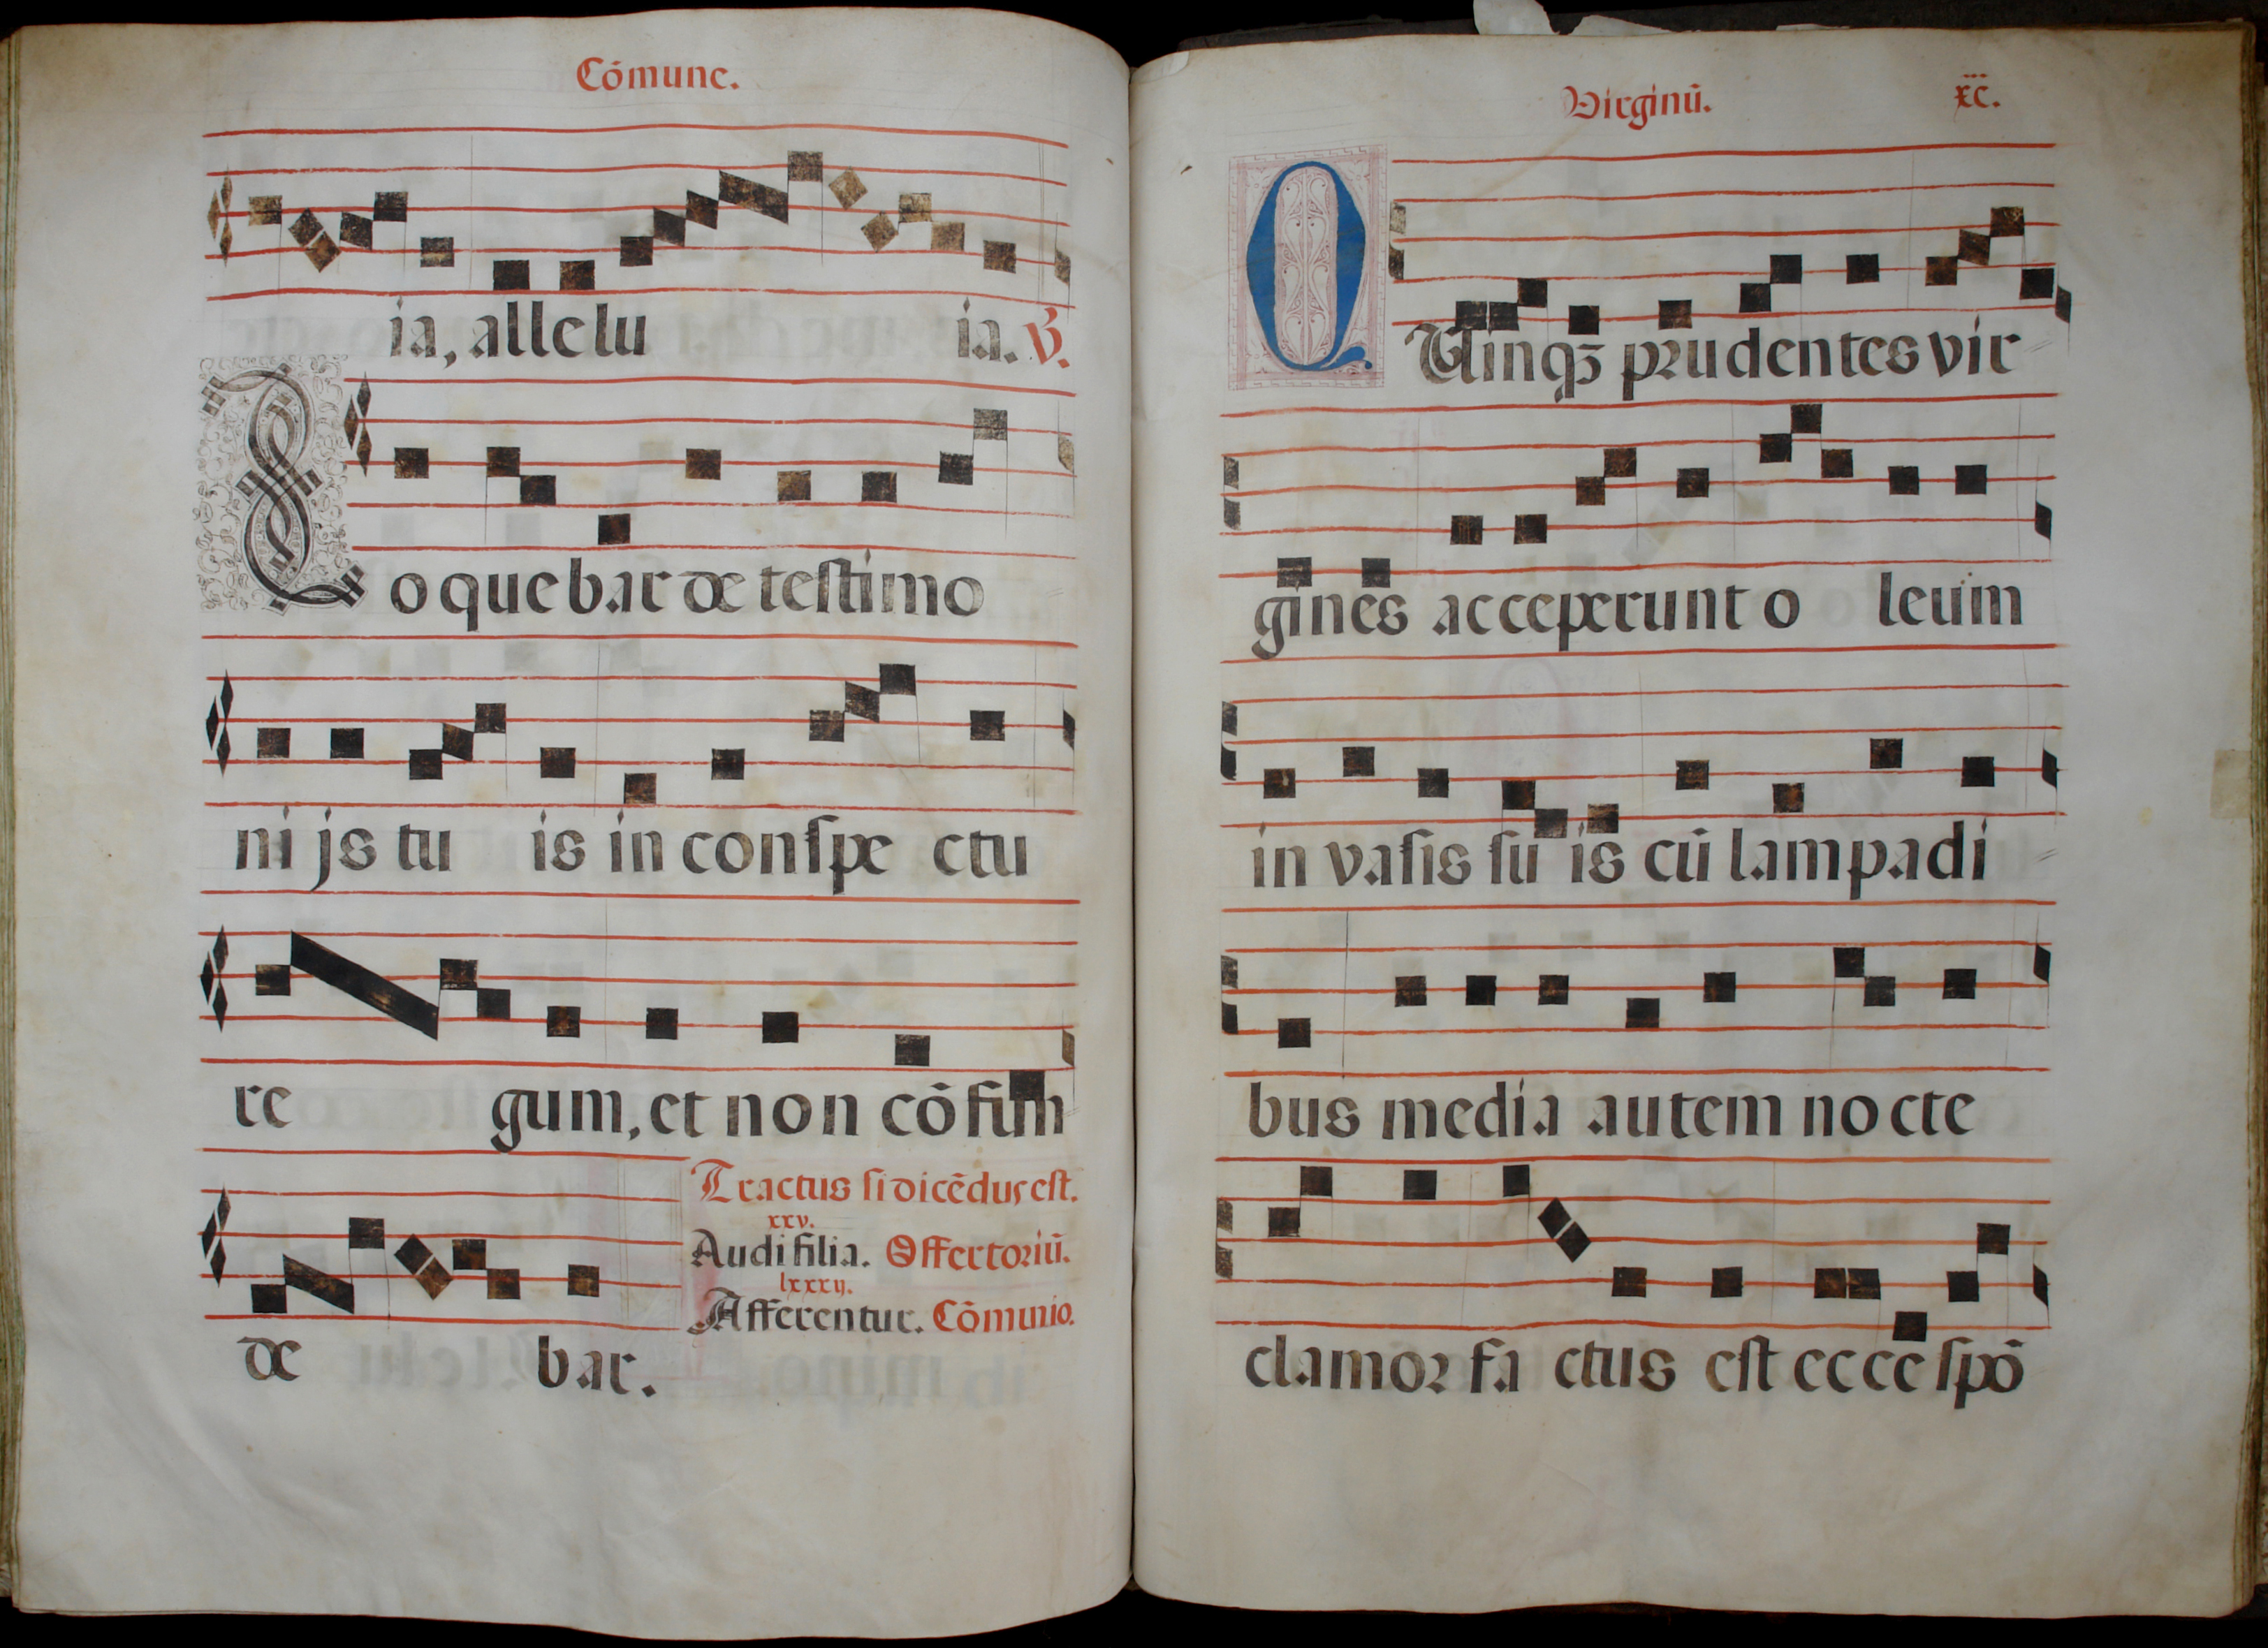 Cōmune.
ia, allelu ia. ℣.
Loquebar de testimo
nijs tu is in conspe ctu
re gum, et non cōfun
de bar.
Tractus si dicēdus est.
xxv.
Audi filia. Offertoriū.
lxxxij.
Afferentur. Cōmunio.
Virginū.
xc.
QUinqꝫ prudentes vir
gines acceperunt o leum
in vasis su is cū lampadi
bus media autem nocte
clamor fa ctus est ecce spō